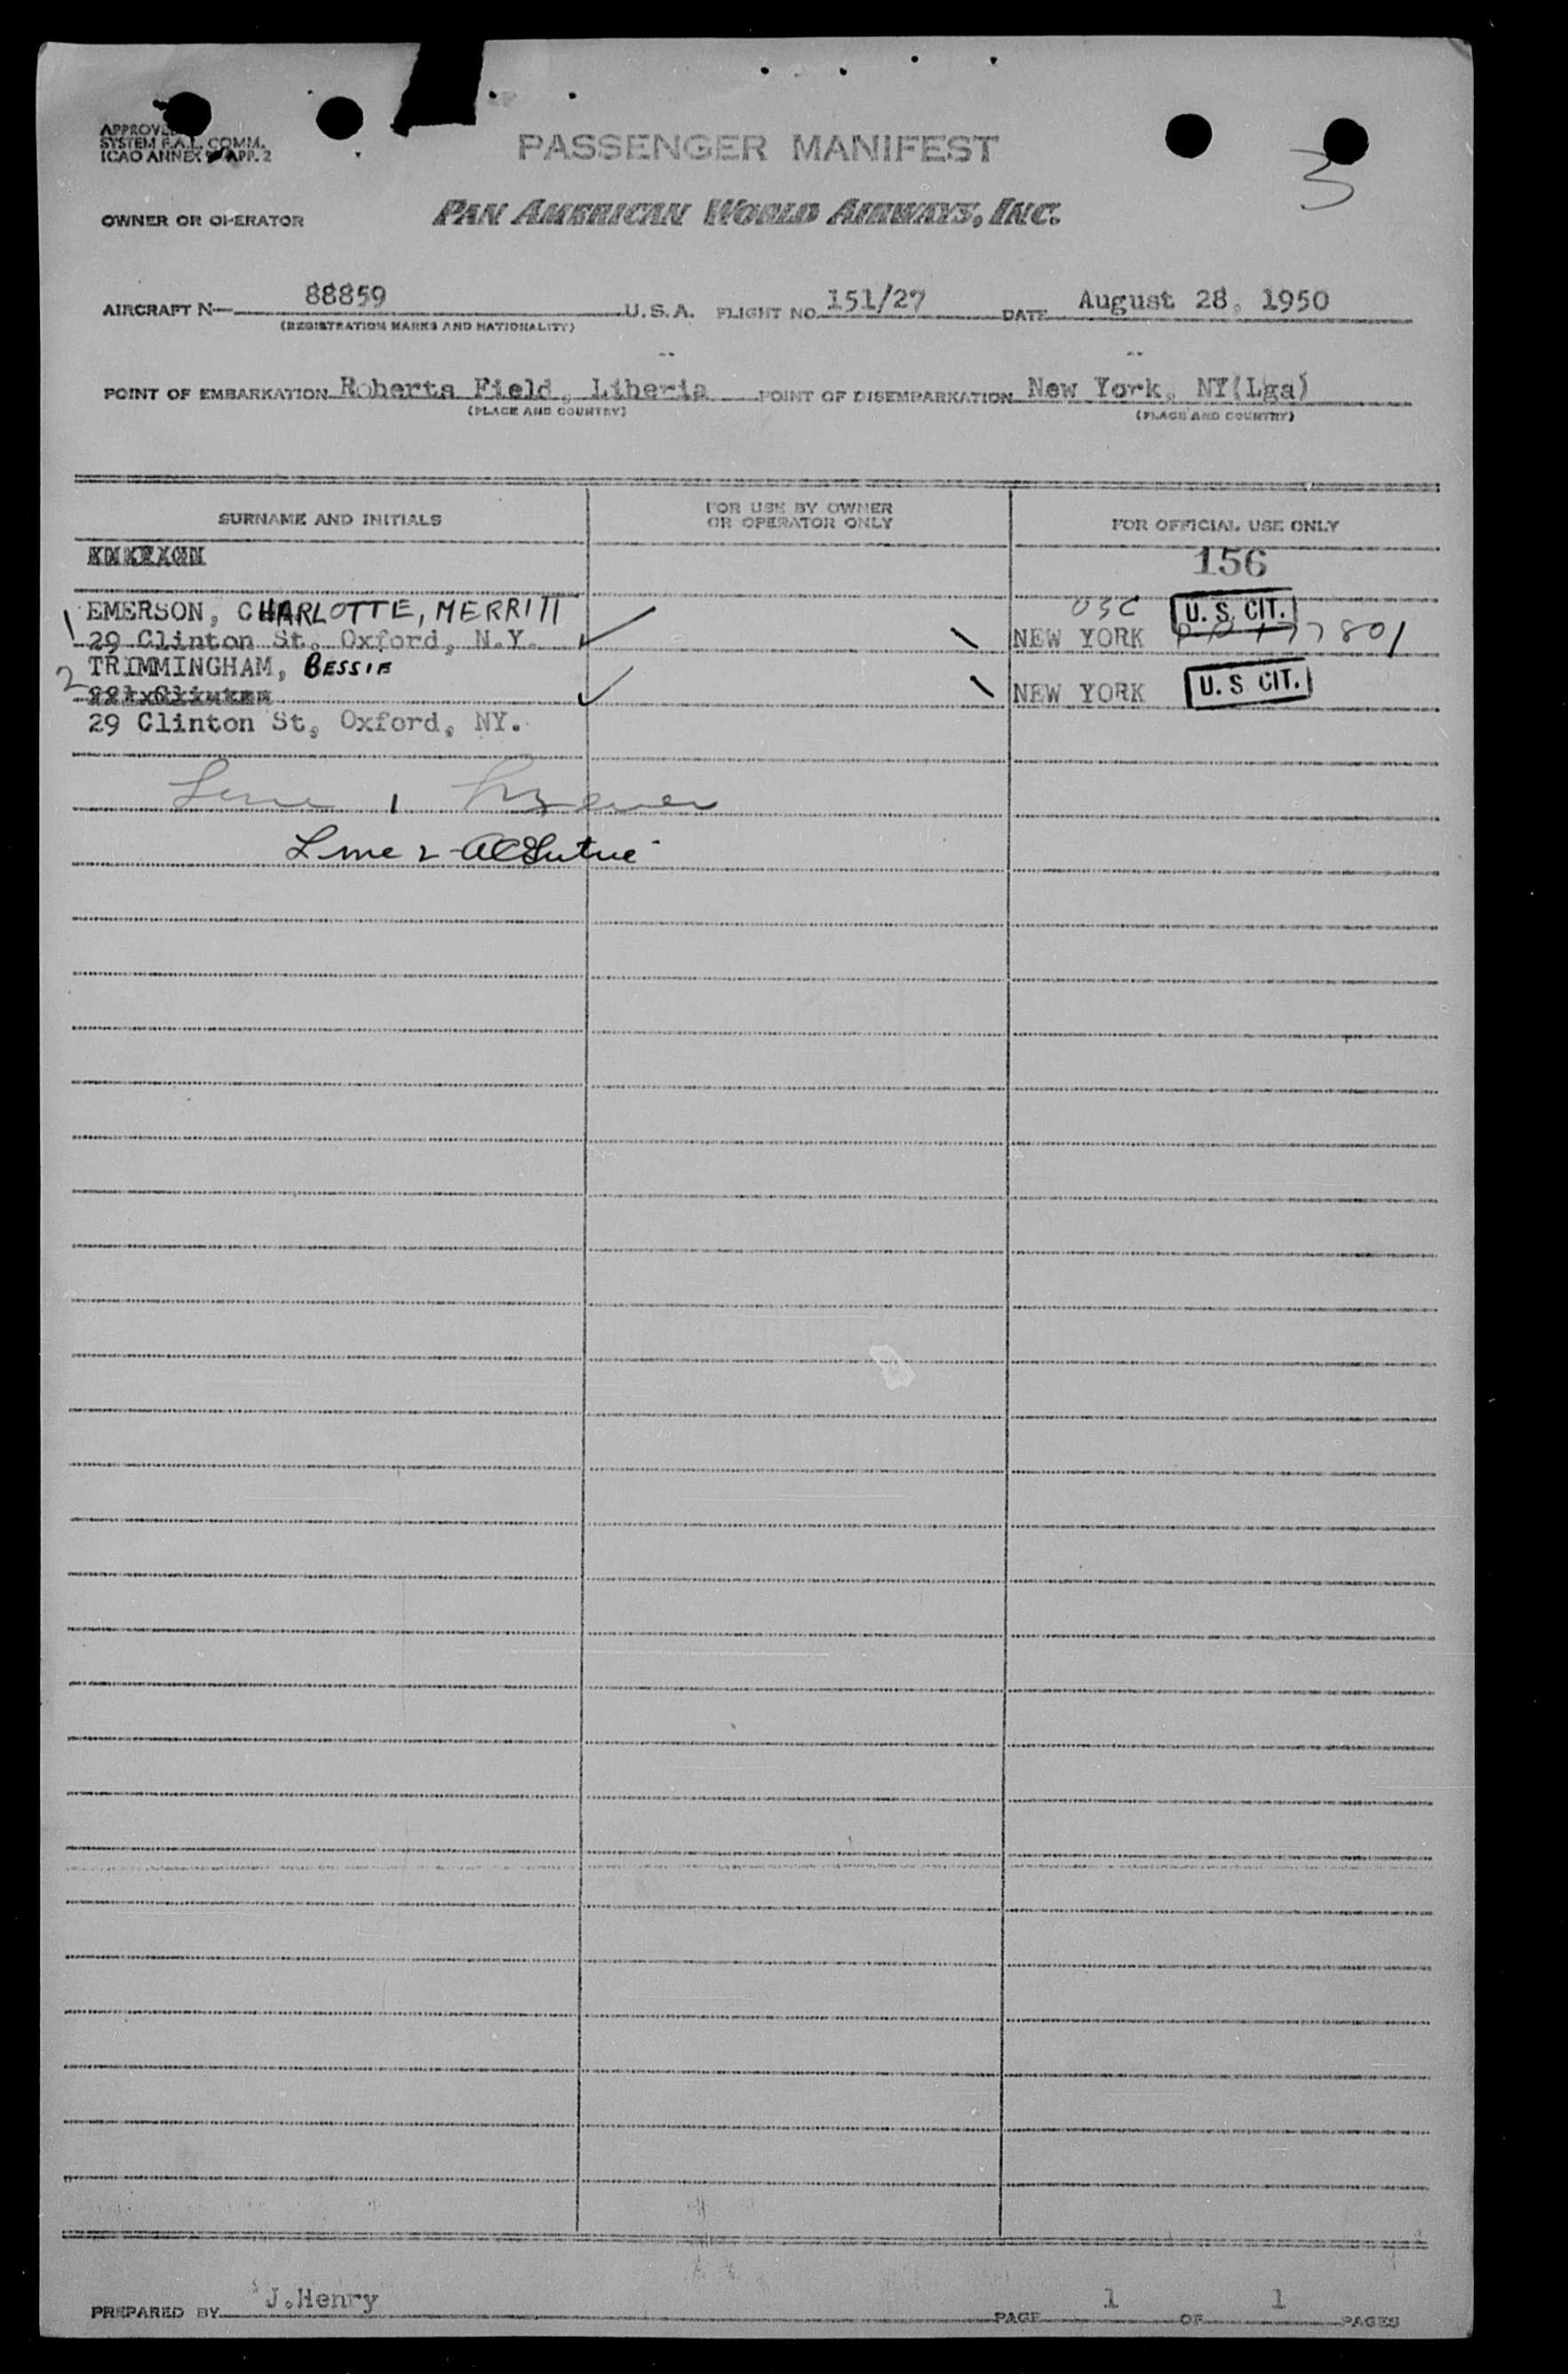 APPROVED
SYSTEM F.A.L. COMM.
ICAO ANNEX 9 APP. 2
PASSENGER MANIFEST
3
OWNER OR OPERATOR PAN AMERICAN WORLD AIRWAYS, INC.
AIRCRAFT N— 88859 U.S.A. FLIGHT NO. 151/27 DATE August 28, 1950
(REGISTRATION MARKS AND NATIONALITY)
POINT OF EMBARKATION Roberts Field, Liberia POINT OF DISEMBARKATION New York, NY(Lga)
(PLACE AND COUNTRY) (PLACE AND COUNTRY)
SURNAME AND INITIALS FOR USE BY OWNER OR OPERATOR ONLY FOR OFFICIAL USE ONLY
156
1 EMERSON, CHARLOTTE, MERRITT U.S. CIT.
29 Clinton St, Oxford, N.Y. NEW YORK
2 TRIMMINGHAM, BESSIE
NEW YORK U.S CIT.
29 Clinton St, Oxford, NY.
Line 1
Line 2
PREPARED BY J.Henry PAGE 1 OF 1 PAGES